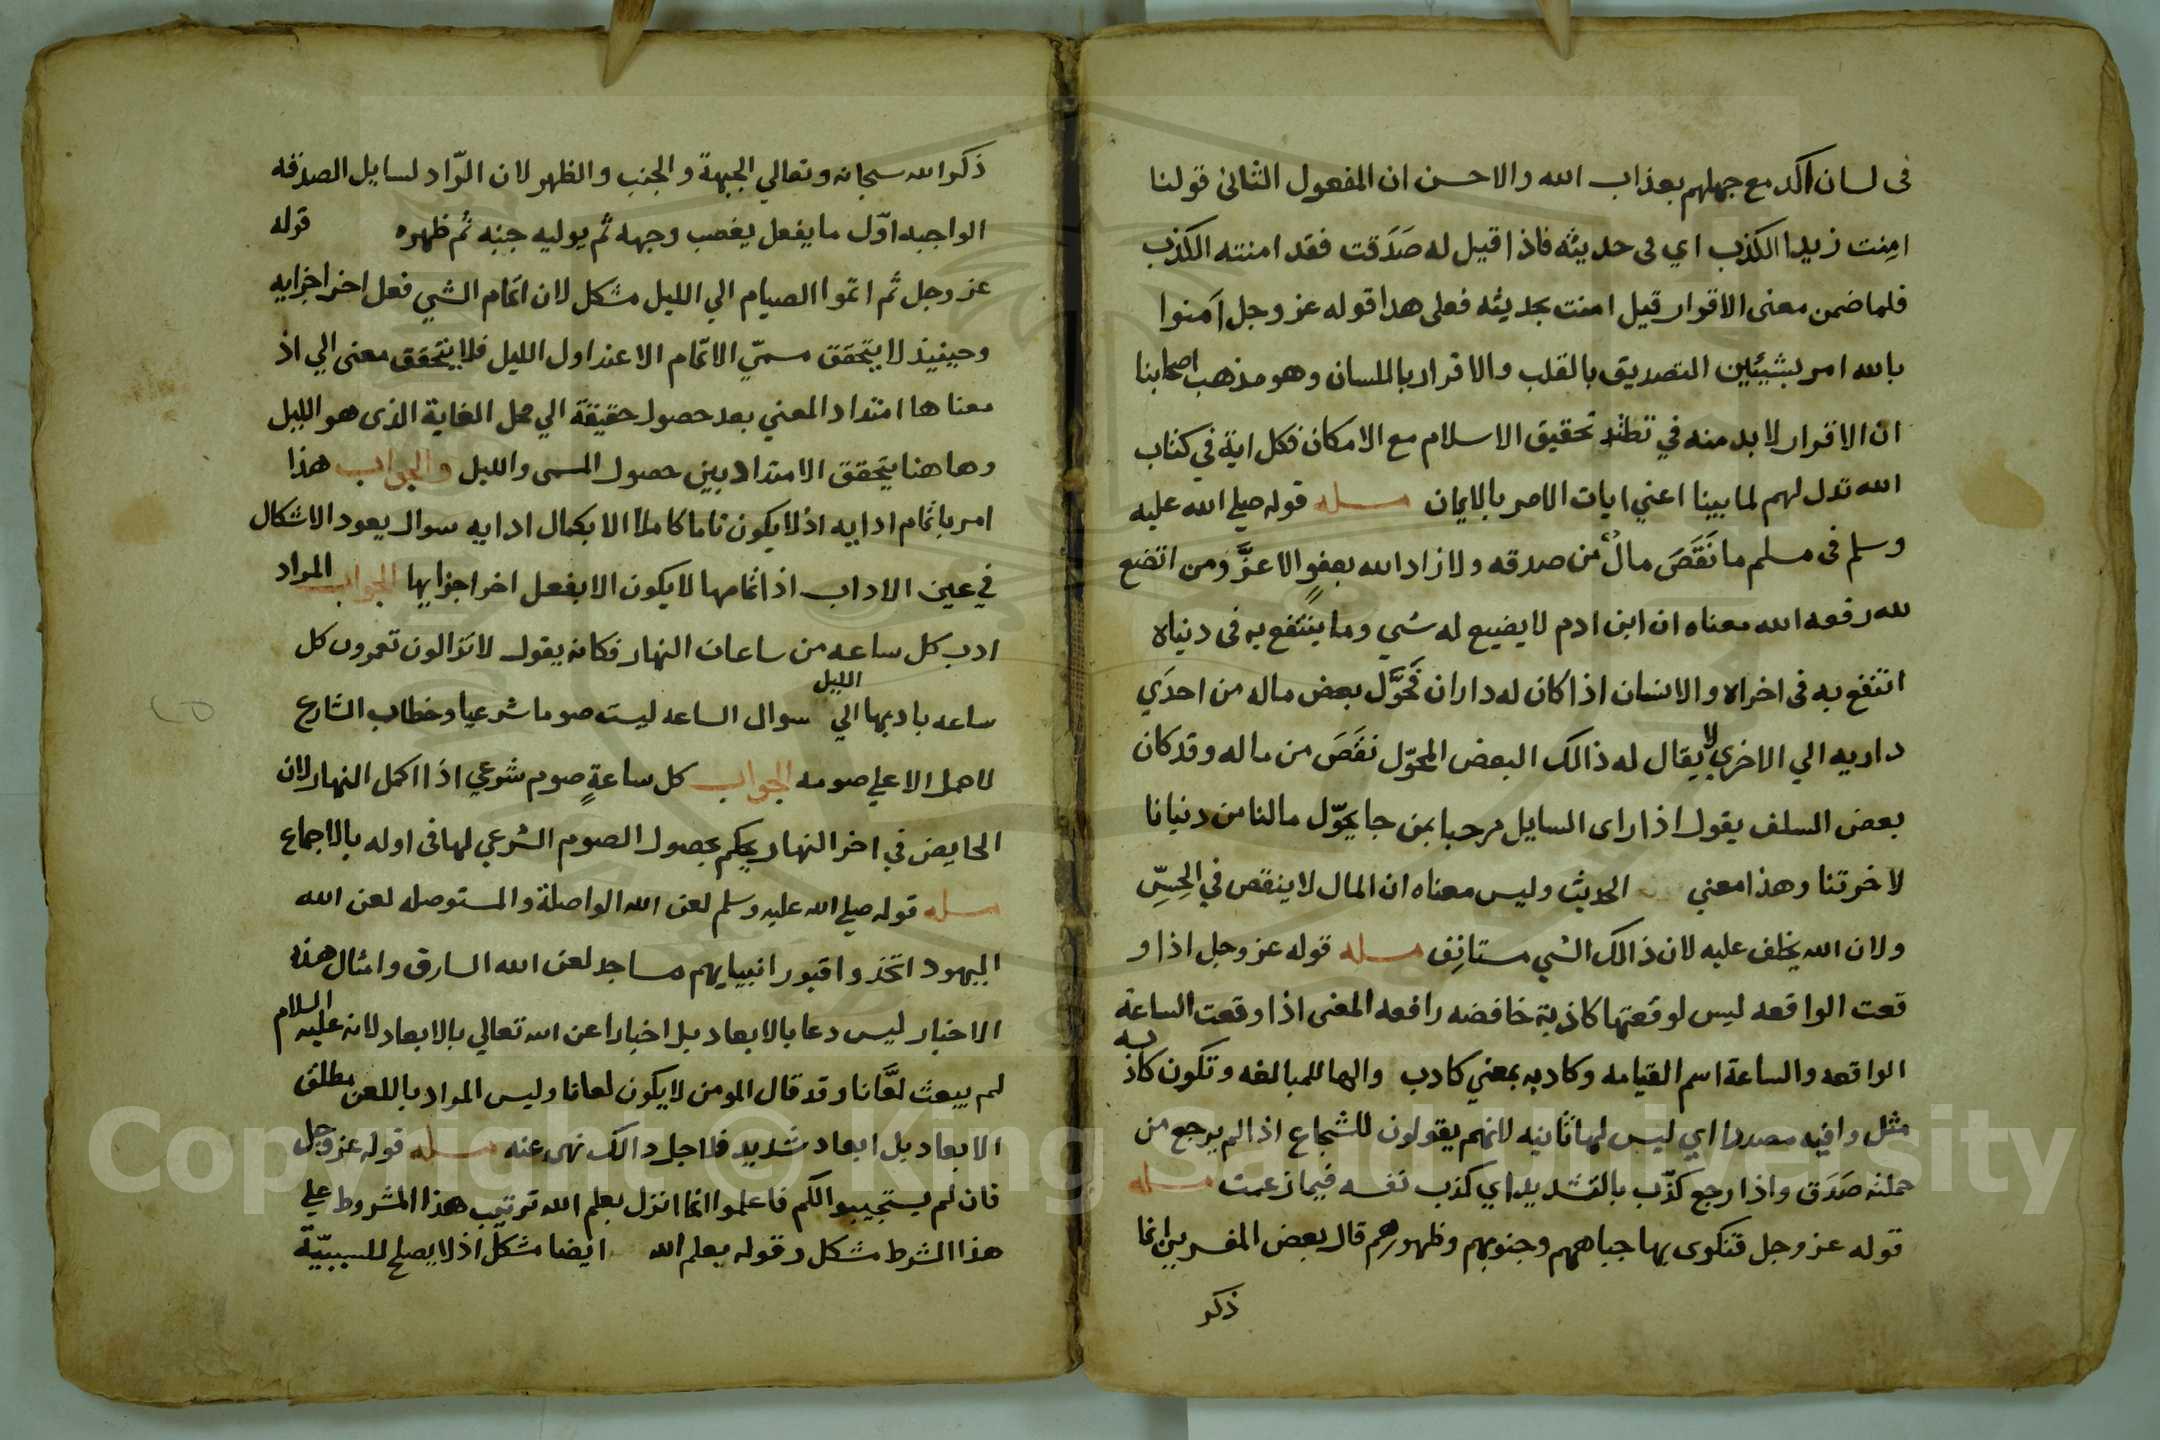 في لسان اكد مع جهلهم بعذاب الله والاحسن ان المفعول الثاني قولنا
امنت زيدا الكذب اي في حديثه فاذا قيل له صَدَقت فقد امنته الكذب
فلما ضمن معنى الاقرار قيل امنت بحديثه فعلى هذا قوله عز وجل آمنوا
بالله امر بشيئين التصديق بالقلب والاقرار باللسان وهو مذهب اصحابنا
ان الاقرار لا بد منه في تحقيق الاسلام مع الامكان فكل اية في كتاب
الله تدل لهم لما بينا اعني ايات الامر بالايمان مسله قوله صلي الله عليه
وسلم في مسلم ما نَقَصَ مالٌ من صدقه ولا زاد الله بعفوٍ الا عزَّ ومن اتضع
لله رفعه الله معناه ان ابن ادم لا يضيع له شي وما ينتفع به في دنياه
انتفع به في اخراه والانسان اذا كان له داران فحَوَّل بعض ماله من احدَي
داريه الي الاخري لا يقال له ذالك البعض المحوّل نقَصَ من ماله وقد كان
بعض السلف يقول اذا راى السايل مرحبا بمن جا يحوّل مالنا من دنيانا
لاخرتنا وهذا معني الحديث وليس معناه ان المال لا ينقص في الحِسِّ
ولان الله يخلف عليه لان ذالك الشي مستانِف مسله قوله عز وجل اذا و
قعت الواقعه ليس لوقعتها كاذبة خافضه رافعه المعنى اذا وقعت الساعة
الواقعه والساعة اسم القيامه وكادبه بمعني كادب والها للمبالغه وتكون كاذبه
مثل وافيه مصدرا اي ليس لها ثانيه لانهم يقولون للشجاع اذا لم يرجع من
حملته صَدَق واذا رجع كذّب بالتشديد اي كذب نفسه فيما زعمت مسله
قوله عز وجل فتكوى بها جباههم وجنوبهم وظهورهم قال بعض المفسرين انما
ذكر
ذكر الله سبحانه وتعالي الجبهة والجنب والظهر لان الرّاد لسايل الصدقه
الواجبه اوّل ما يفعل يغصب وجهه ثم يوليه جنبه ثم ظهره قوله
عز وجل ثم اتموا الصيام الي الليل مشكل لان اتمام الشي فعل اخر اجزايه
وحينيذ لا يتحقق مسمّي الاتمام الا عند اول الليل فلا يتحقق معنى الي اذ
معناها امتداد المعني بعد حصول حقيقة الي محل الغاية الذي هو الليل
وهاهنا يتحقق الامتداد بين حصول المسمى والليل والجواب هذا
امر باتمام ادابه اذ لا يكون تاما كاملا الا بكمال ادابه سوال يعود الاشكال
في عين الاداب اذ اتمامها لا يكون الا بفعل اخر اجزايها الجواب المراد
ادب كل ساعه من ساعات النهار فكانه يقول لا تزالون تعمرون كل
ساعه بادبها الي الليل سوال الساعه ليست صوما شرعيا وخطاب الشارع
لا يحمل الا علي صومه الجواب كل ساعةٍ صوم شرعي اذا اكمل النهار لان
الحايض في اخر النهار يحكم بحصول الصوم الشرعي لها في اوله بالاجماع
مسله قوله صلي الله عليه وسلم لعن الله الواصلة والمستوصله لعن الله
اليهود اتخذوا قبور انبيايهم مساجد لعن الله السارق وامثال هذه
الاخبار ليس دعا بالابعاد بل اخبارا عن الله تعالي بالابعاد لانه عليه السلام
لم يبعث لعَّانا وقد قال المومن لا يكون لعانا وليس المراد باللعن مطلق
الابعاد بل ابعاد شديد فلاجل دالك نهى عنه مسله قوله عز وجل
فان لم يستجيبوا لكم فاعلموا انما انزل بعلم الله ترتيب هذا المشروط علي
هذا الشرط مشكل وقوله بعلم الله ايضا مشكل اذ لا يصلح للسببيّة
Copyright © King Saud University